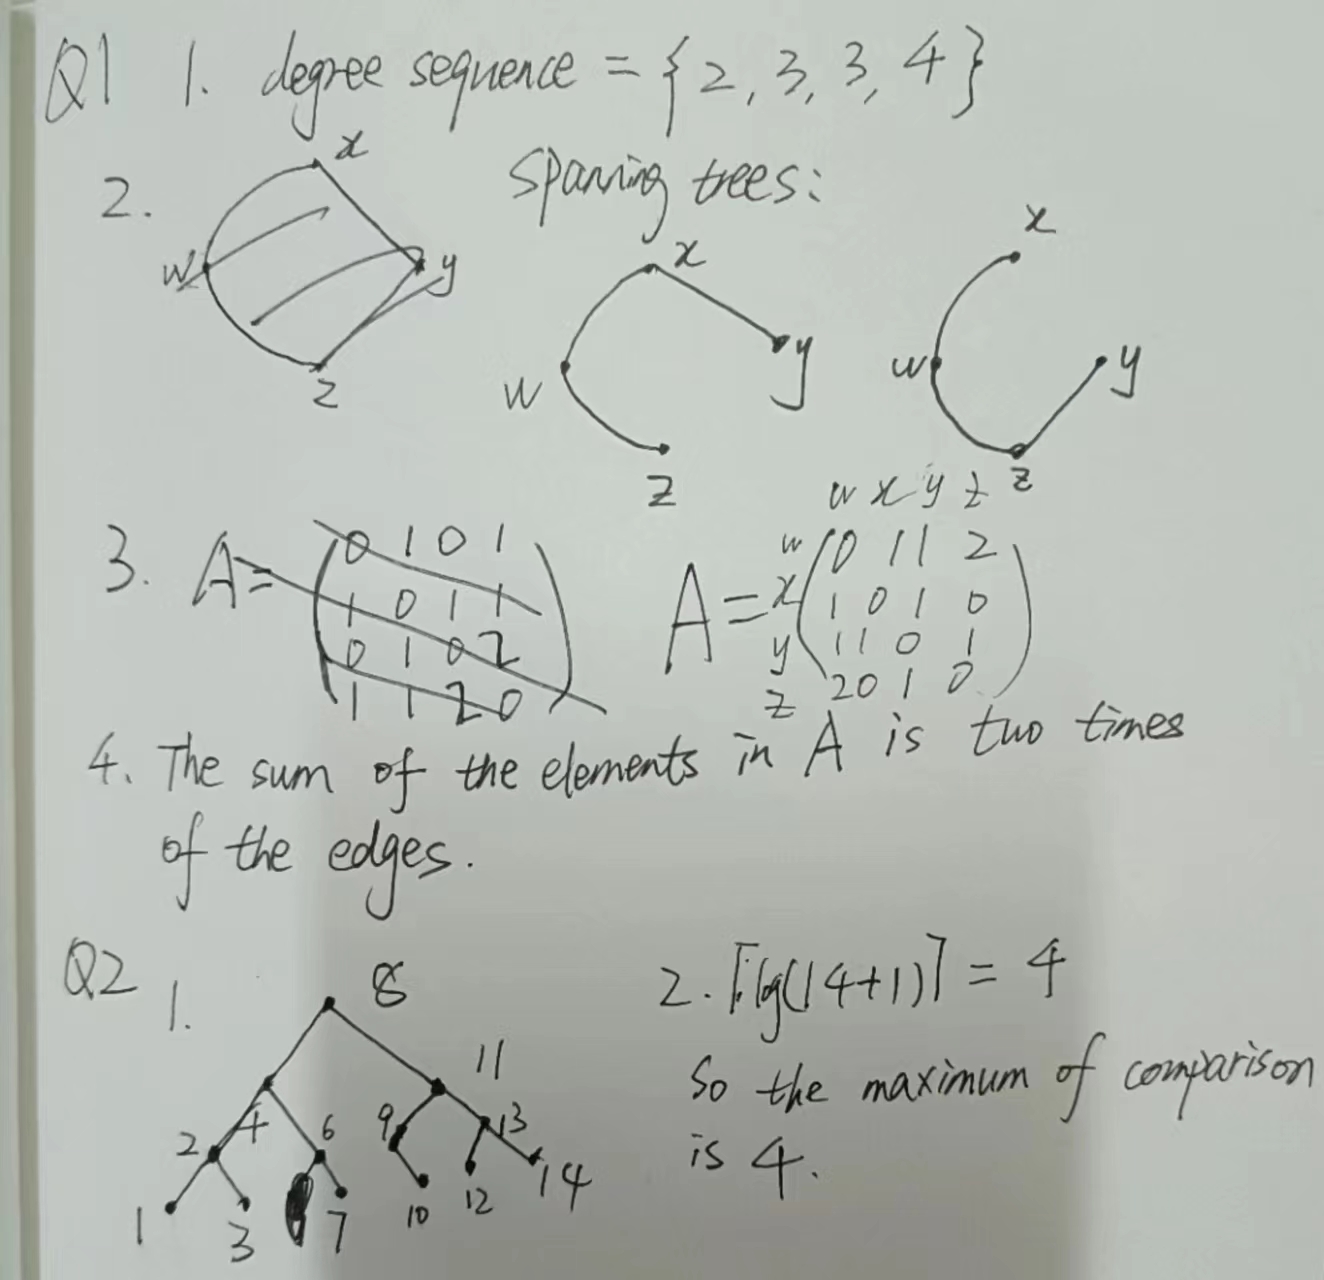 Q1 1. degree sequence = {2, 3, 3, 4}
2.
x
w
y
z
Spanning trees:
x
w
y
z
x
w
y
z
3. A=
0 1 0 1
1 0 1 1
0 1 0 2
1 1 2 0
A=
w x y z
w 0 1 1 2
x 1 0 1 0
y 1 1 0 1
z 2 0 1 0
4. The sum of the elements in A is two times
of the edges.
Q2
1.
8
4
11
2
6
9
13
1
3
7
10
12
14
2. ⌈lg(14+1)⌉ = 4
So the maximum of comparison
is 4.